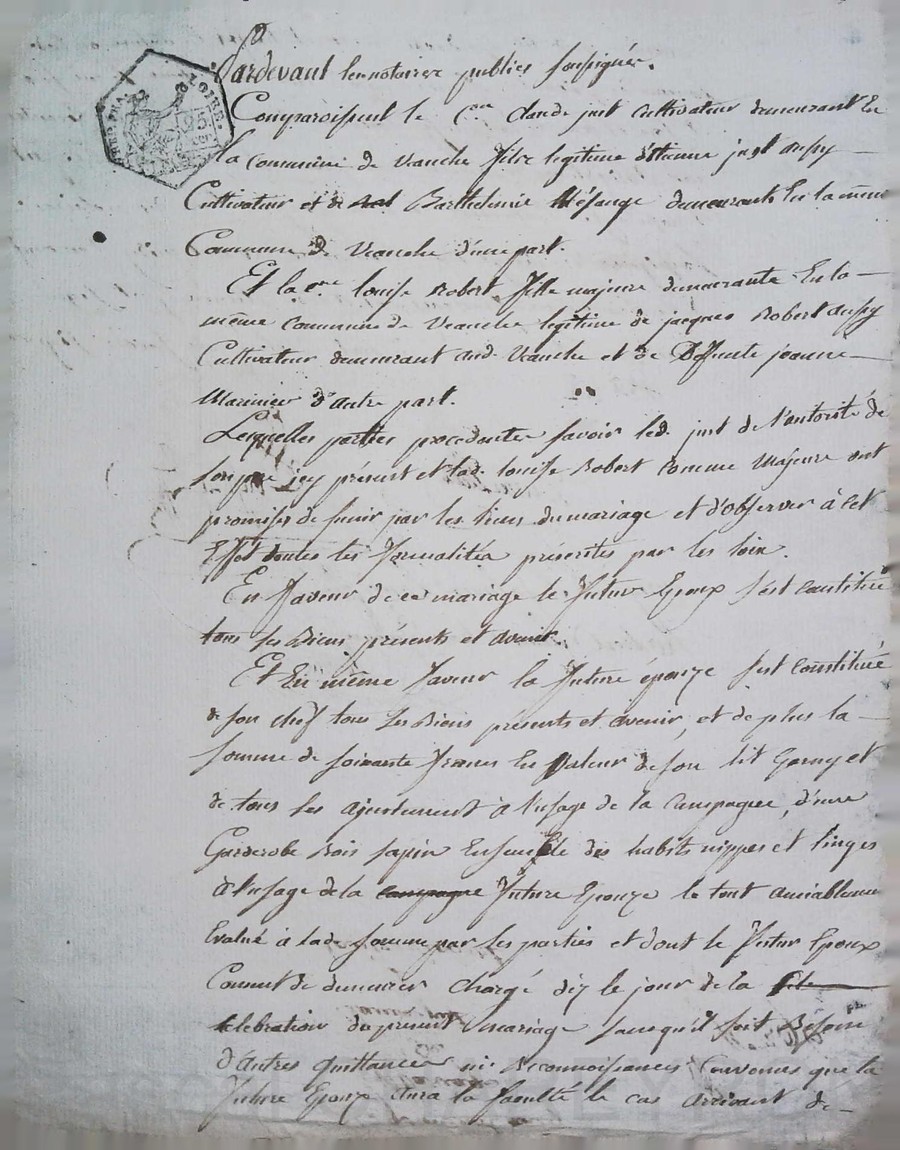 Pardevant les notaires publics soussignés.
Comparoissent le C.en Claude just Cultivateur demeurant En
la Commune de veauche fils legitime d'Etienne just aussy
Cultivateur et de Barthelemie Mésange demeurants En la même
Commune de Veauche d'une part.
Et la C.ne louise Robert fille majeure demeurante En la
même Commune de Veauche legitime de jacques Robert aussy
Cultivateur demeurant aud. Veauche et de Deffunte jeanne
Marinier d'autre part.
Lesquelles parties procedantes savoir led. just de l'autorité de
son pere icy présent et lad. louise Robert Comme Majeure ont
promises de s'unir par les liens du mariage et d'observer à cet
Effet toutes les formalités préscrites par les loix.
En faveur de ce mariage le futur Epoux s'est Constitué
tous ses Biens présents et avenir
Et En même faveur la future épouze s'est Constituée
de son chef tous ses Biens présents et avenir, et de plus la
somme de soixante francs En valeur de son lit Garny et
de tous les ajustement à l'usage de la Campagne, d'une
Garderobe Bois sapin Ensemble des habits nippes et linges
à l'usage de la campagne future Epouze le tout amiablement
Evalué à lade. somme par les parties et dont le futur Epoux
Consent de demeurer Chargé dès le jour de la
celebration du présent mariage sans qu'il soit Besoin
d'autres quittances ni Reconnoissances Convenus que la
future Epouze aura la faculté le cas arrivant de
REP. FRA.
LOIRE.
25